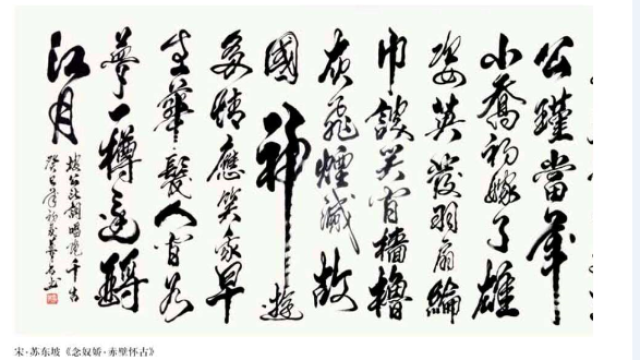 公瑾當年
小喬初嫁了雄
姿英發羽扇綸
巾談笑間檣櫓
灰飛煙滅故
國神遊
多情應笑我早
生華髮人間如
夢一樽還酹
江月
坡公此詞唱絕千古
癸巳年初夏
宋·苏东坡《念奴娇·赤壁怀古》